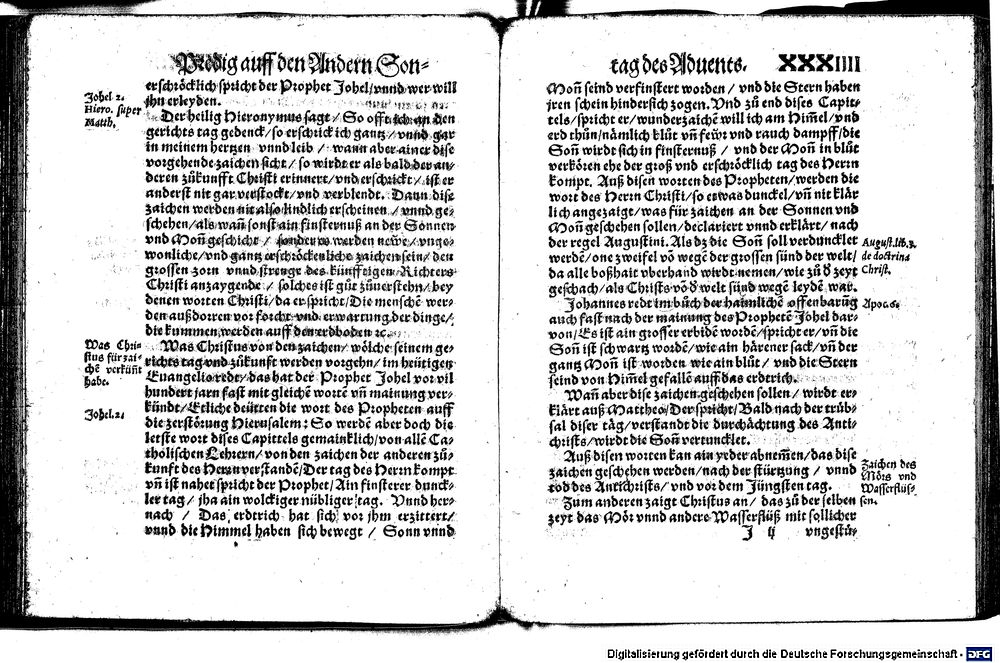 Predig auff den Andern Son-
erschröcklich spricht der Prophet Johel/ vnnd wer will
jhn erleyden.
Johel 2.
Hiero. super
Matth.
Der heilig Hieronymus sagt/ So offt ich an den
gerichts tag gedenck/ so erschrick ich gantz/ vnnd gar
in meinem hertzen vnnd leib/ wann aber ainer dise
vorgehende zaichen sicht/ so wirdt er als bald der an-
deren zůkunfft Christi erinnert/ vnd erschrickt/ ist er
anderst nit gar verstockt/ vnd verblendt. Dann dise
zaichen werden nit also kindlich erscheinen/ vnnd ge-
schehen/ als wañ sonst ain finsternuß an der Sonnen
vnd Moñ geschicht/ sonder es werden newe/ vnge-
wonliche/ vnd gantz erschröckenliche zaichen sein/ den
grossen zorn vnnd strenge des künfftigen Richters
Christi anzaygende/ solches ist gůt zůuerstehn/ bey
denen worten Christi/ da er spricht/ Die menschẽ wer-
den außdorren vor forcht/ vnd erwartung der dinge/
die kummen werden auff den erdboden ꝛc.
Was Chri-
stus für zai-
chẽ verküñt
habe.
Was Christus von den zaichen/ wölche seinem ge-
richts tag vnd zůkunft werden vorgehn/ im heütigen
Euangelio redt/ das hat der Prophet Johel vor vil
hundert jarn fast mit gleichẽ wortẽ vñ mainung ver-
kündt/ Etliche deütten die wort des Propheten auff
Johel. 2.
die zerstörung Hierusalem: So werdẽ aber doch die
letste wort dises Capittels gemainklich/ von allẽ Ca-
thölischen Lehrern/ von den zaichen der anderen zů-
kunft des Herrn verstandẽ/ Der tag des Herrn kompt
vñ ist nahet spricht der Prophet/ Ain finsterer dunck-
ler tag/ jha ain wolckiger nübliger tag. Vnnd her-
nach/ Das erdtrich hat sich vor jhm erzittert/
vnnd die Himmel haben sich bewegt/ Sonn vnnd
tag des Aduents. XXXIIII
Moñ seind verfinstert worden/ vnd die Stern haben
jren schein hindersich zogen. Vnd zů end dises Capit-
tels/ spricht er/ wunderzaichẽ will ich am Him̃el/ vnd
erd thůn/ nämlich klůt vñ fewr vnd rauch dampff/ die
Soñ wirdt sich in finsternuß/ vnd der Moñ in blůt
verkören ehe der groß vnd erschröcklich tag des Herrn
kompt. Auß disen worten des Propheten/ werden die
wort des Herrn Christi/ so etwas dunckel/ vñ nit klär
lich angezaigt/ was für zaichen an der Sonnen vnd
Moñ geschehen sollen/ declariert vnnd erklärt/ nach
der regel Augustini. Als dz die Soñ soll verduncklet
August. lib. 3.
de doctrina
Christ.
werdẽ/ one zweifel võ wegẽ der grossen sünd der welt/
da alle boßhait vberhand wirdt nemen/ wie zů d̃ zeyt
geschach/ als Christus võ d̃ welt sünd wegẽ leydẽ war.
Johannes redt im bůch der haimlichẽ offenbarũg
Apoc. 6.
auch fast nach der mainung des Prophetẽ Jöhel dar-
von/ Es ist ain grosser erbidẽ wordẽ/ spricht er/ vñ die
Soñ ist schwartz wordẽ/ wie ain härener sack/ vñ der
gantz Moñ ist worden wie ain blůt/ vnd die Stern
seind von Him̃el gefallẽ auff das erdtrich.
Wañ aber dise zaichen geschehen sollen/ wirdt er-
klärt auß Mattheo/ Der spricht/ Bald nach der trüb-
sal diser täg/ verstandt die durchächtung des Anti-
christs/ wirdt die Soñ vertuncklet.
Auß disen worten kan ain yeder abnem̃en/ das dise
Zaichen des
Mörs vnd
Wasserflüs-
sen.
zaichen geschehen werden/ nach der stürtzung/ vnnd
tod des Antichrists/ vnd vor dem Jüngsten tag.
Zum anderen zaigt Christus an/ das zů der selben
zeyt das Mör vnnd andere Wasserflüß mit sollicher
J ij vngestü-
Digitalisierung gefördert durch die Deutsche Forschungsgemeinschaft - DFG